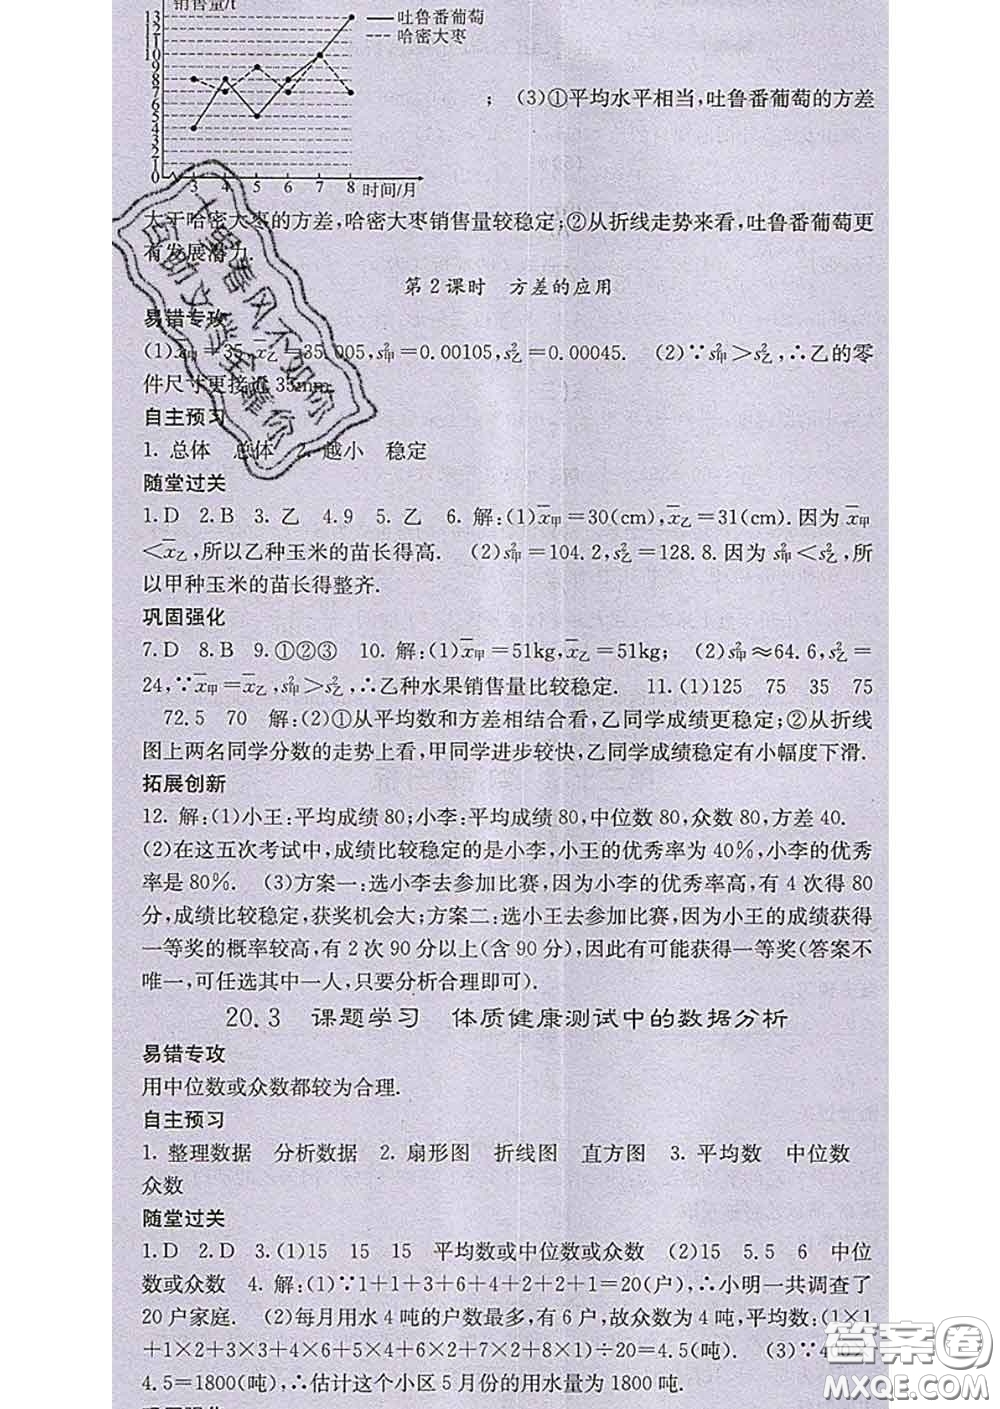 销售量/t
吐鲁番葡萄
哈密大枣
13
12
11
10
9
8
7
6
5
4
3
2
1
0
3 4 5 6 7 8 时间/月
; (3)①平均水平相当,吐鲁番葡萄的方差
大于哈密大枣的方差,哈密大枣销售量较稳定;②从折线走势来看,吐鲁番葡萄更
有发展潜力.
第2课时 方差的应用
易错专攻
(1)x̄甲=35,x̄乙=35.005,s²甲=0.00105,s²乙=0.00045. (2)∵s²甲>s²乙,∴乙的零
件尺寸更接近35mm.
自主预习
1. 总体 总体 2. 越小 稳定
随堂过关
1.D 2.B 3. 乙 4.9 5. 乙 6. 解:(1)x̄甲=30(cm),x̄乙=31(cm).因为x̄甲
<x̄乙,所以乙种玉米的苗长得高. (2)s²甲=104.2,s²乙=128.8.因为 s²甲<s²乙,所
以甲种玉米的苗长得整齐.
巩固强化
7.D 8.B 9.①②③ 10. 解:(1)x̄甲=51kg,x̄乙=51kg; (2)s²甲≈64.6,s²乙=
24,∵x̄甲=x̄乙,s²甲>s²乙,∴乙种水果销售量比较稳定. 11.(1)125 75 35 75
72.5 70 解:(2)①从平均数和方差相结合看,乙同学成绩更稳定;②从折线
图上两名同学分数的走势上看,甲同学进步较快,乙同学成绩稳定有小幅度下滑.
拓展创新
12. 解:(1)小王:平均成绩80;小李:平均成绩80,中位数80,众数80,方差40.
(2)在这五次考试中,成绩比较稳定的是小李,小王的优秀率为40%,小李的优秀
率是80%. (3)方案一:选小李去参加比赛,因为小李的优秀率高,有4次得80
分,成绩比较稳定,获奖机会大;方案二:选小王去参加比赛,因为小王的成绩获得
一等奖的概率较高,有2次90分以上(含90分),因此有可能获得一等奖(答案不
唯一,可任选其中一人,只要分析合理即可).
20.3 课题学习 体质健康测试中的数据分析
易错专攻
用中位数或众数都较为合理.
自主预习
1. 整理数据 分析数据 2. 扇形图 折线图 直方图 3. 平均数 中位数
众数
随堂过关
1.D 2.D 3.(1)15 15 15 平均数或中位数或众数 (2)15 5.5 6 中位
数或众数 4. 解:(1)∵1+1+3+6+4+2+2+1=20(户),∴小明一共调查了
20户家庭. (2)每月用水4吨的户数最多,有6户,故众数为4吨,平均数:(1×1
+1×2+3×3+4×6+5×4+6×2+7×2+8×1)÷20=4.5(吨). (3)∵400×
4.5=1800(吨),∴估计这个小区5月份的用水量为1800吨.
巩固强化
十里春风不如你
百助文档全靠你
答案圈
MXQE.COM